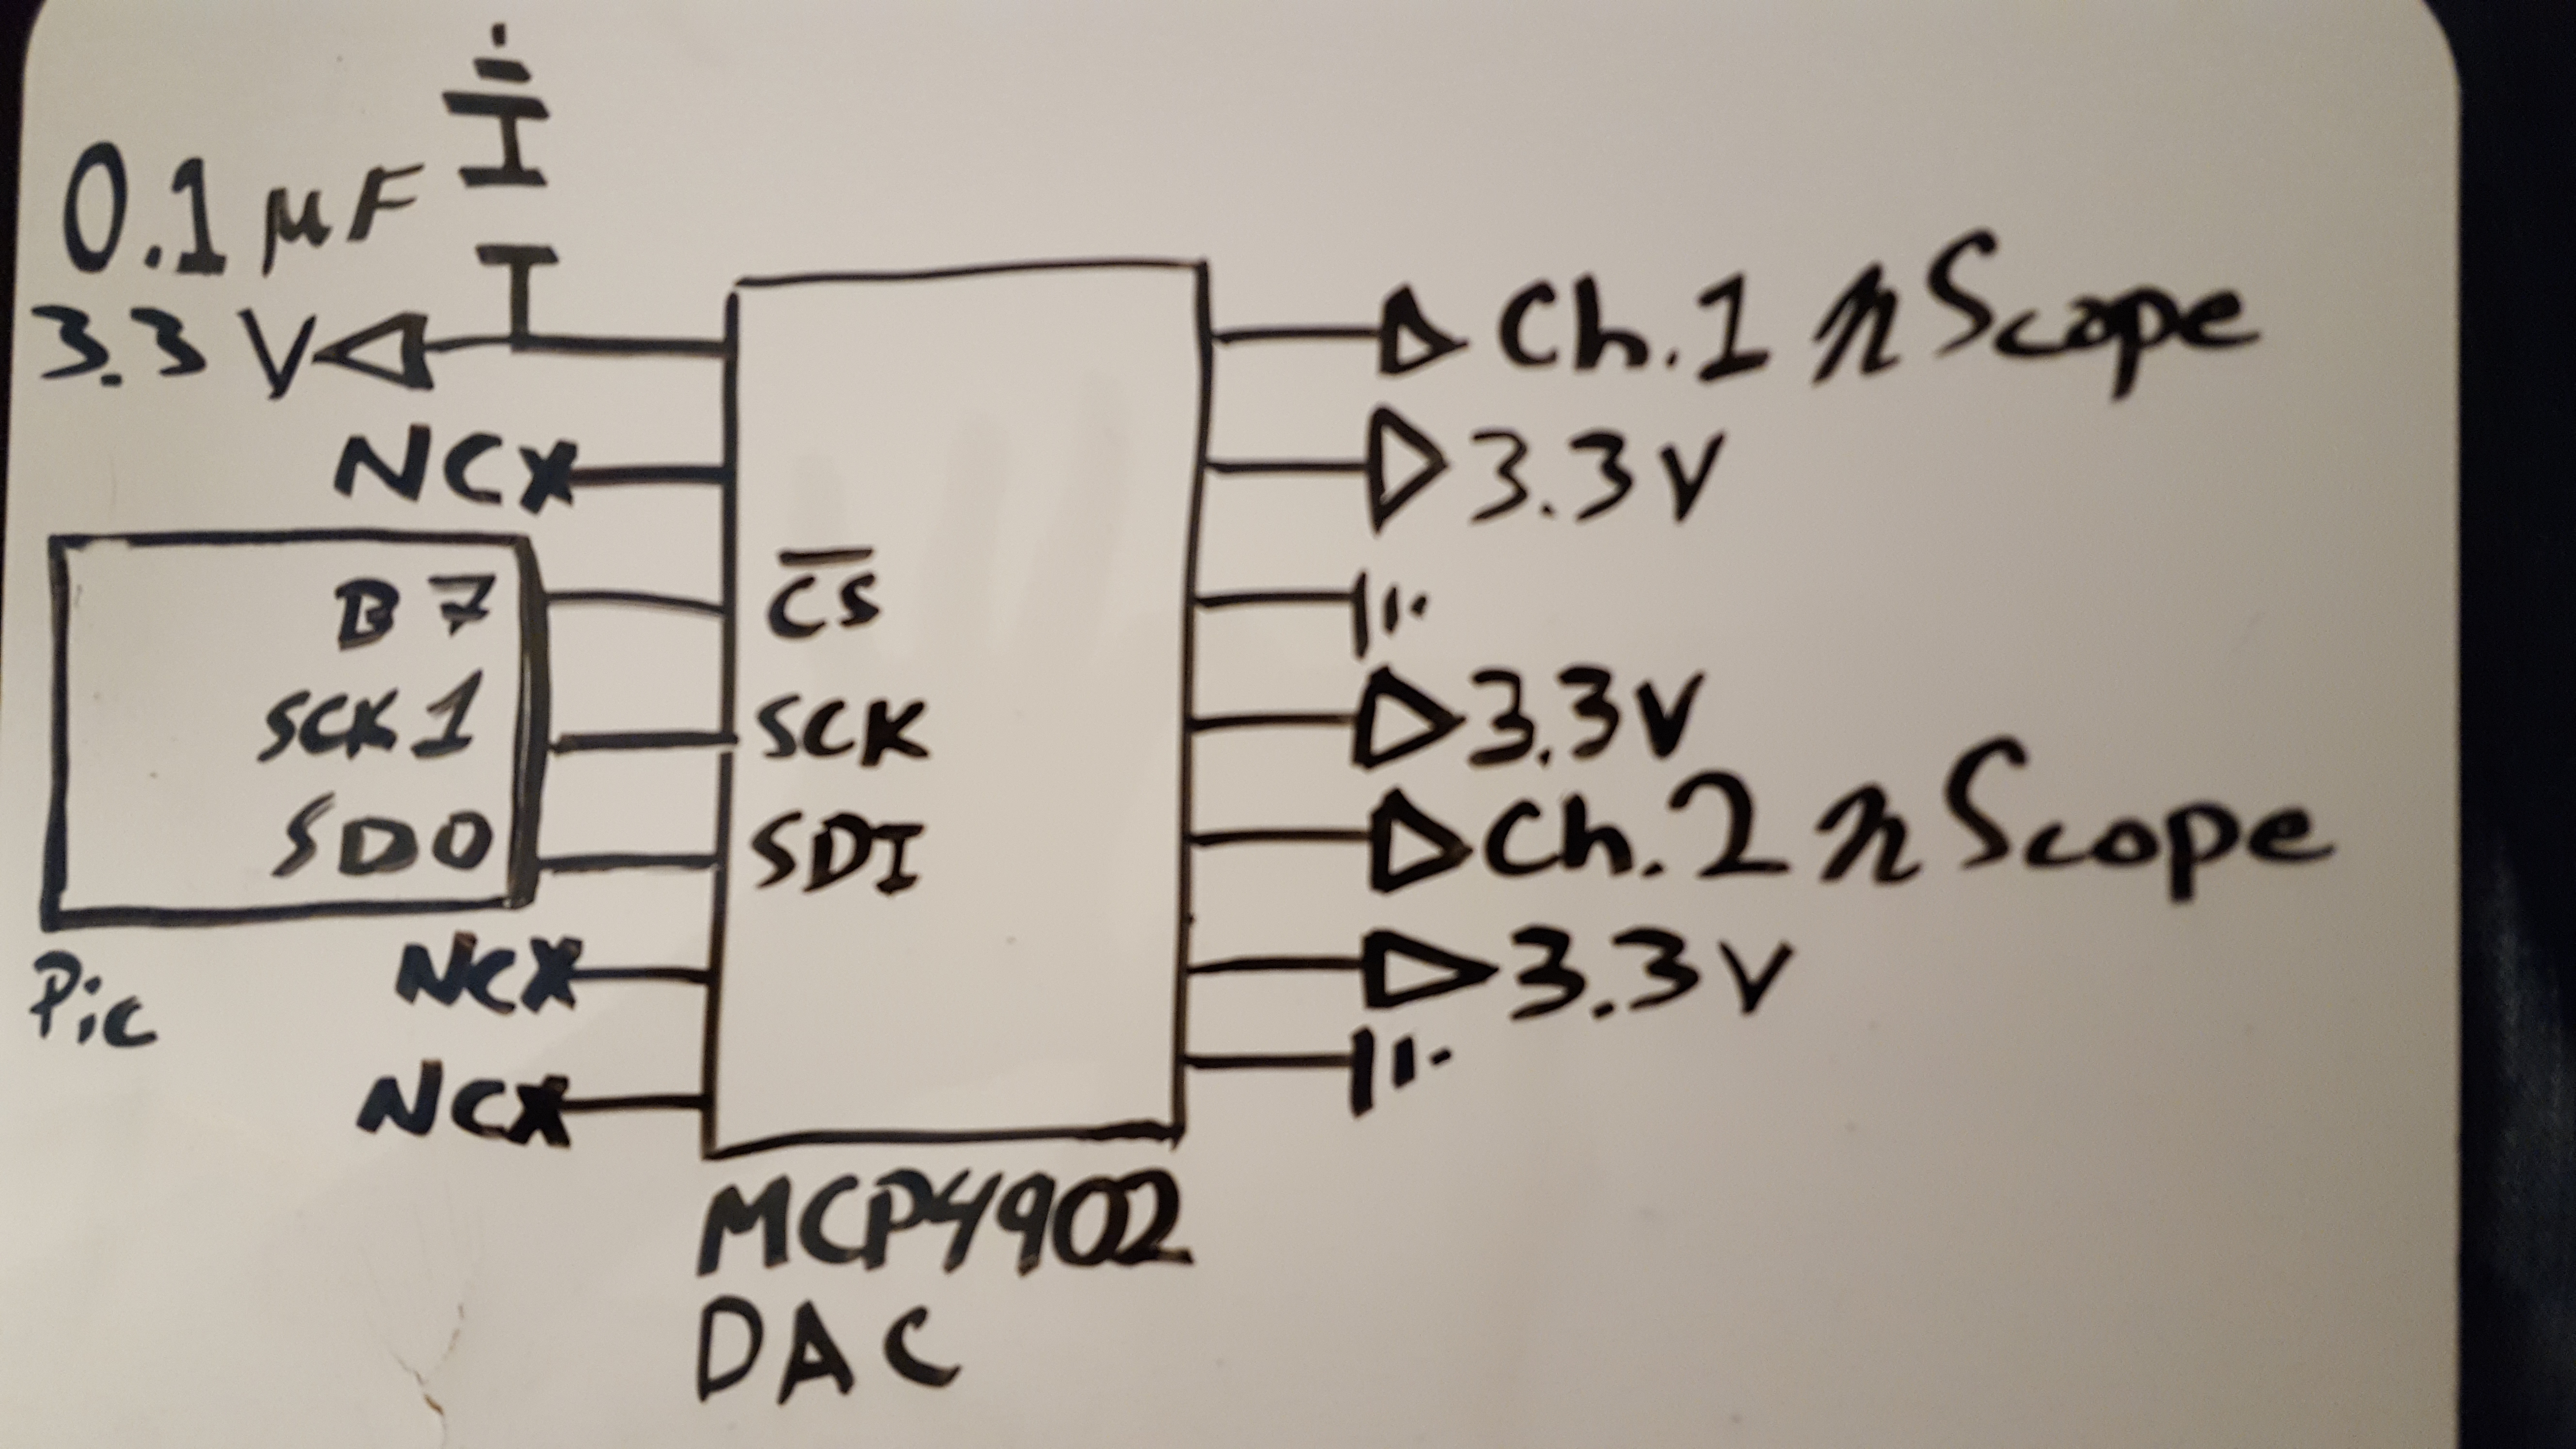 0.1 µF
3.3 V
NC
B7
SCK1
SD0
Pic
NC
NC
CS
SCK
SDI
MCP4902
DAC
Ch.1 nScope
3.3V
3.3V
Ch.2 nScope
3.3V